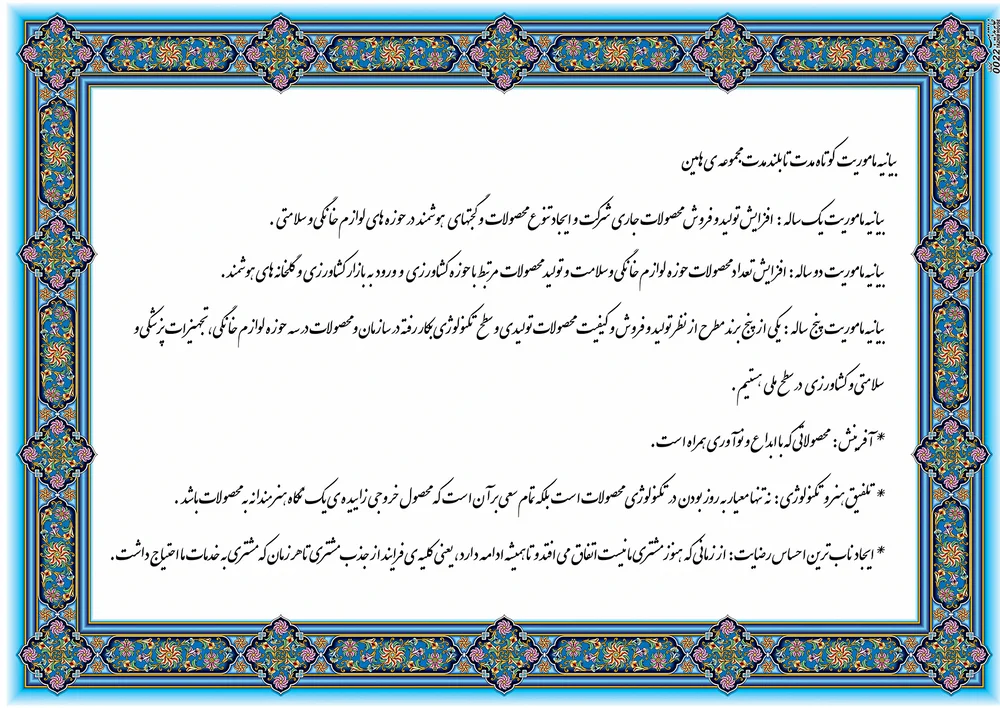 بیانیه ماموریت کوتاه مدت تا بلند مدت مجموعه ی هابین
بیانیه ماموریت یک ساله : افزایش تولید و فروش محصولات جاری شرکت و ایجاد تنوع محصولات و گجتهای هوشمند در حوزه های لوازم خانگی و سلامتی .
بیانیه ماموریت دو ساله : افزایش تعداد محصولات حوزه لوازم خانگی و سلامت و تولید محصولات مرتبط با حوزه کشاورزی و ورود به بازار کشاورزی و گلخانه های هوشمند .
بیانیه ماموریت پنج ساله : یکی از پنج برند مطرح از نظر تولید و فروش و کیفیت محصولات تولیدی و سطح تکنولوژی بکار رفته در سازمان و محصولات در سه حوزه لوازم خانگی، تجهیزات پزشکی و
سلامتی و کشاورزی در سطح ملی هستیم .
* آفرینش : محصولاتی که با ابداع و نوآوری همراه است .
* تلفیق هنر و تکنولوژی : نه تنها معیار به روز بودن در تکنولوژی محصولات است بلکه تمام سعی بر آن است که محصول خروجی زاییده ی یک نگاه هنرمندانه به محصولات باشد .
* ایجاد ناب ترین احساس رضایت : از زمانی که هنوز مشتری ما نیست اتفاق می افتد و تا همیشه ادامه دارد، یعنی کلیه ی فرایند از جذب مشتری تا هر زمان که مشتری به خدمات ما احتیاج داشت .
0022